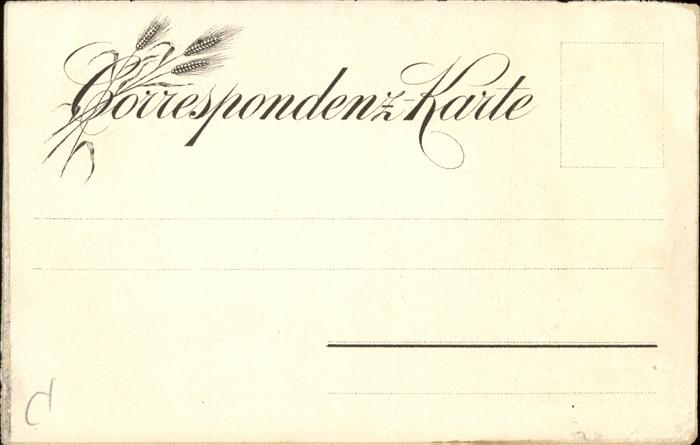 Correspondenz-Karte
d